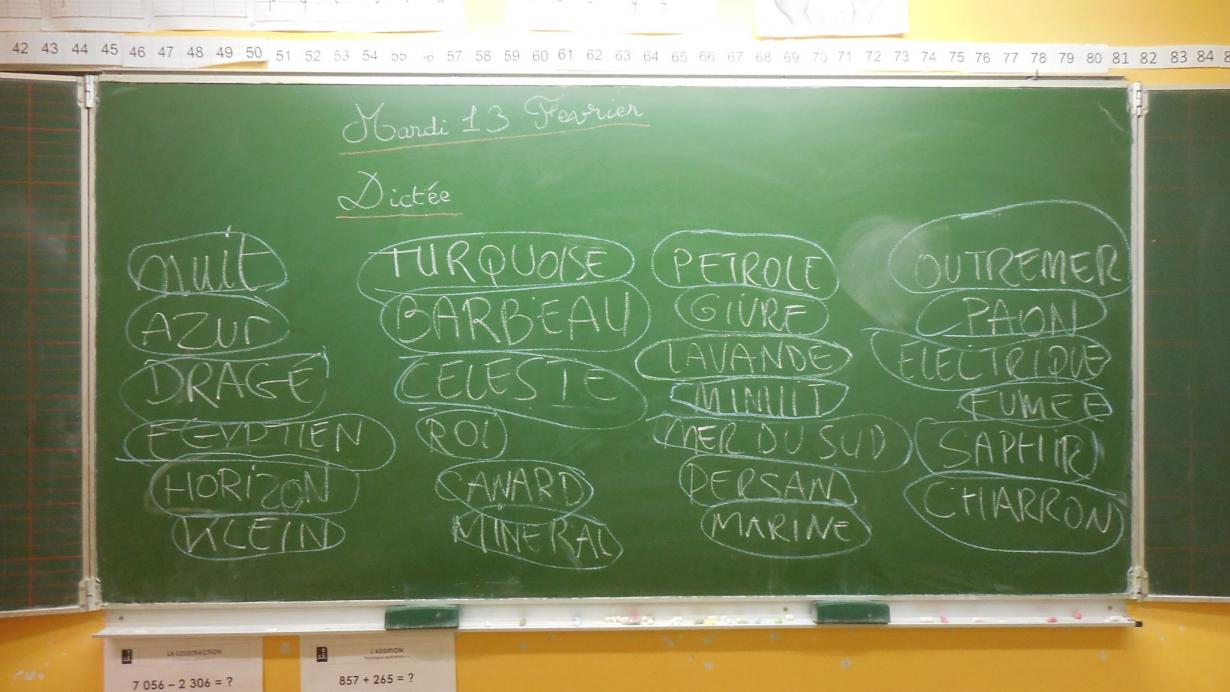 42 43 44 45 46 47 48 49 50 51 52 53 54 55 57 58 59 60 61 62 63 64 65 66 67 68 69 70 71 72 73 74 75 76 77 78 79 80 81 82 83 84
Mardi 13 Fevrier
Dictée
nuit
AZur
DRAGÉ
EGYPTIEN
HORiZON
KLEIN
TURQUOISE
BARBEAU
CELESTE
ROI
CANARD
MINERAL
PETROLE
GIVRE
LAVANDE
MINUIT
MER DU SUD
PERSAN
MARINE
OUTREMER
PAON
ELECTRIQUE
FUMEE
SAPHIR
CHARRON
LA SOUSTRACTION
7 056 – 2 306 = ?
L'ADDITION
857 + 265 = ?